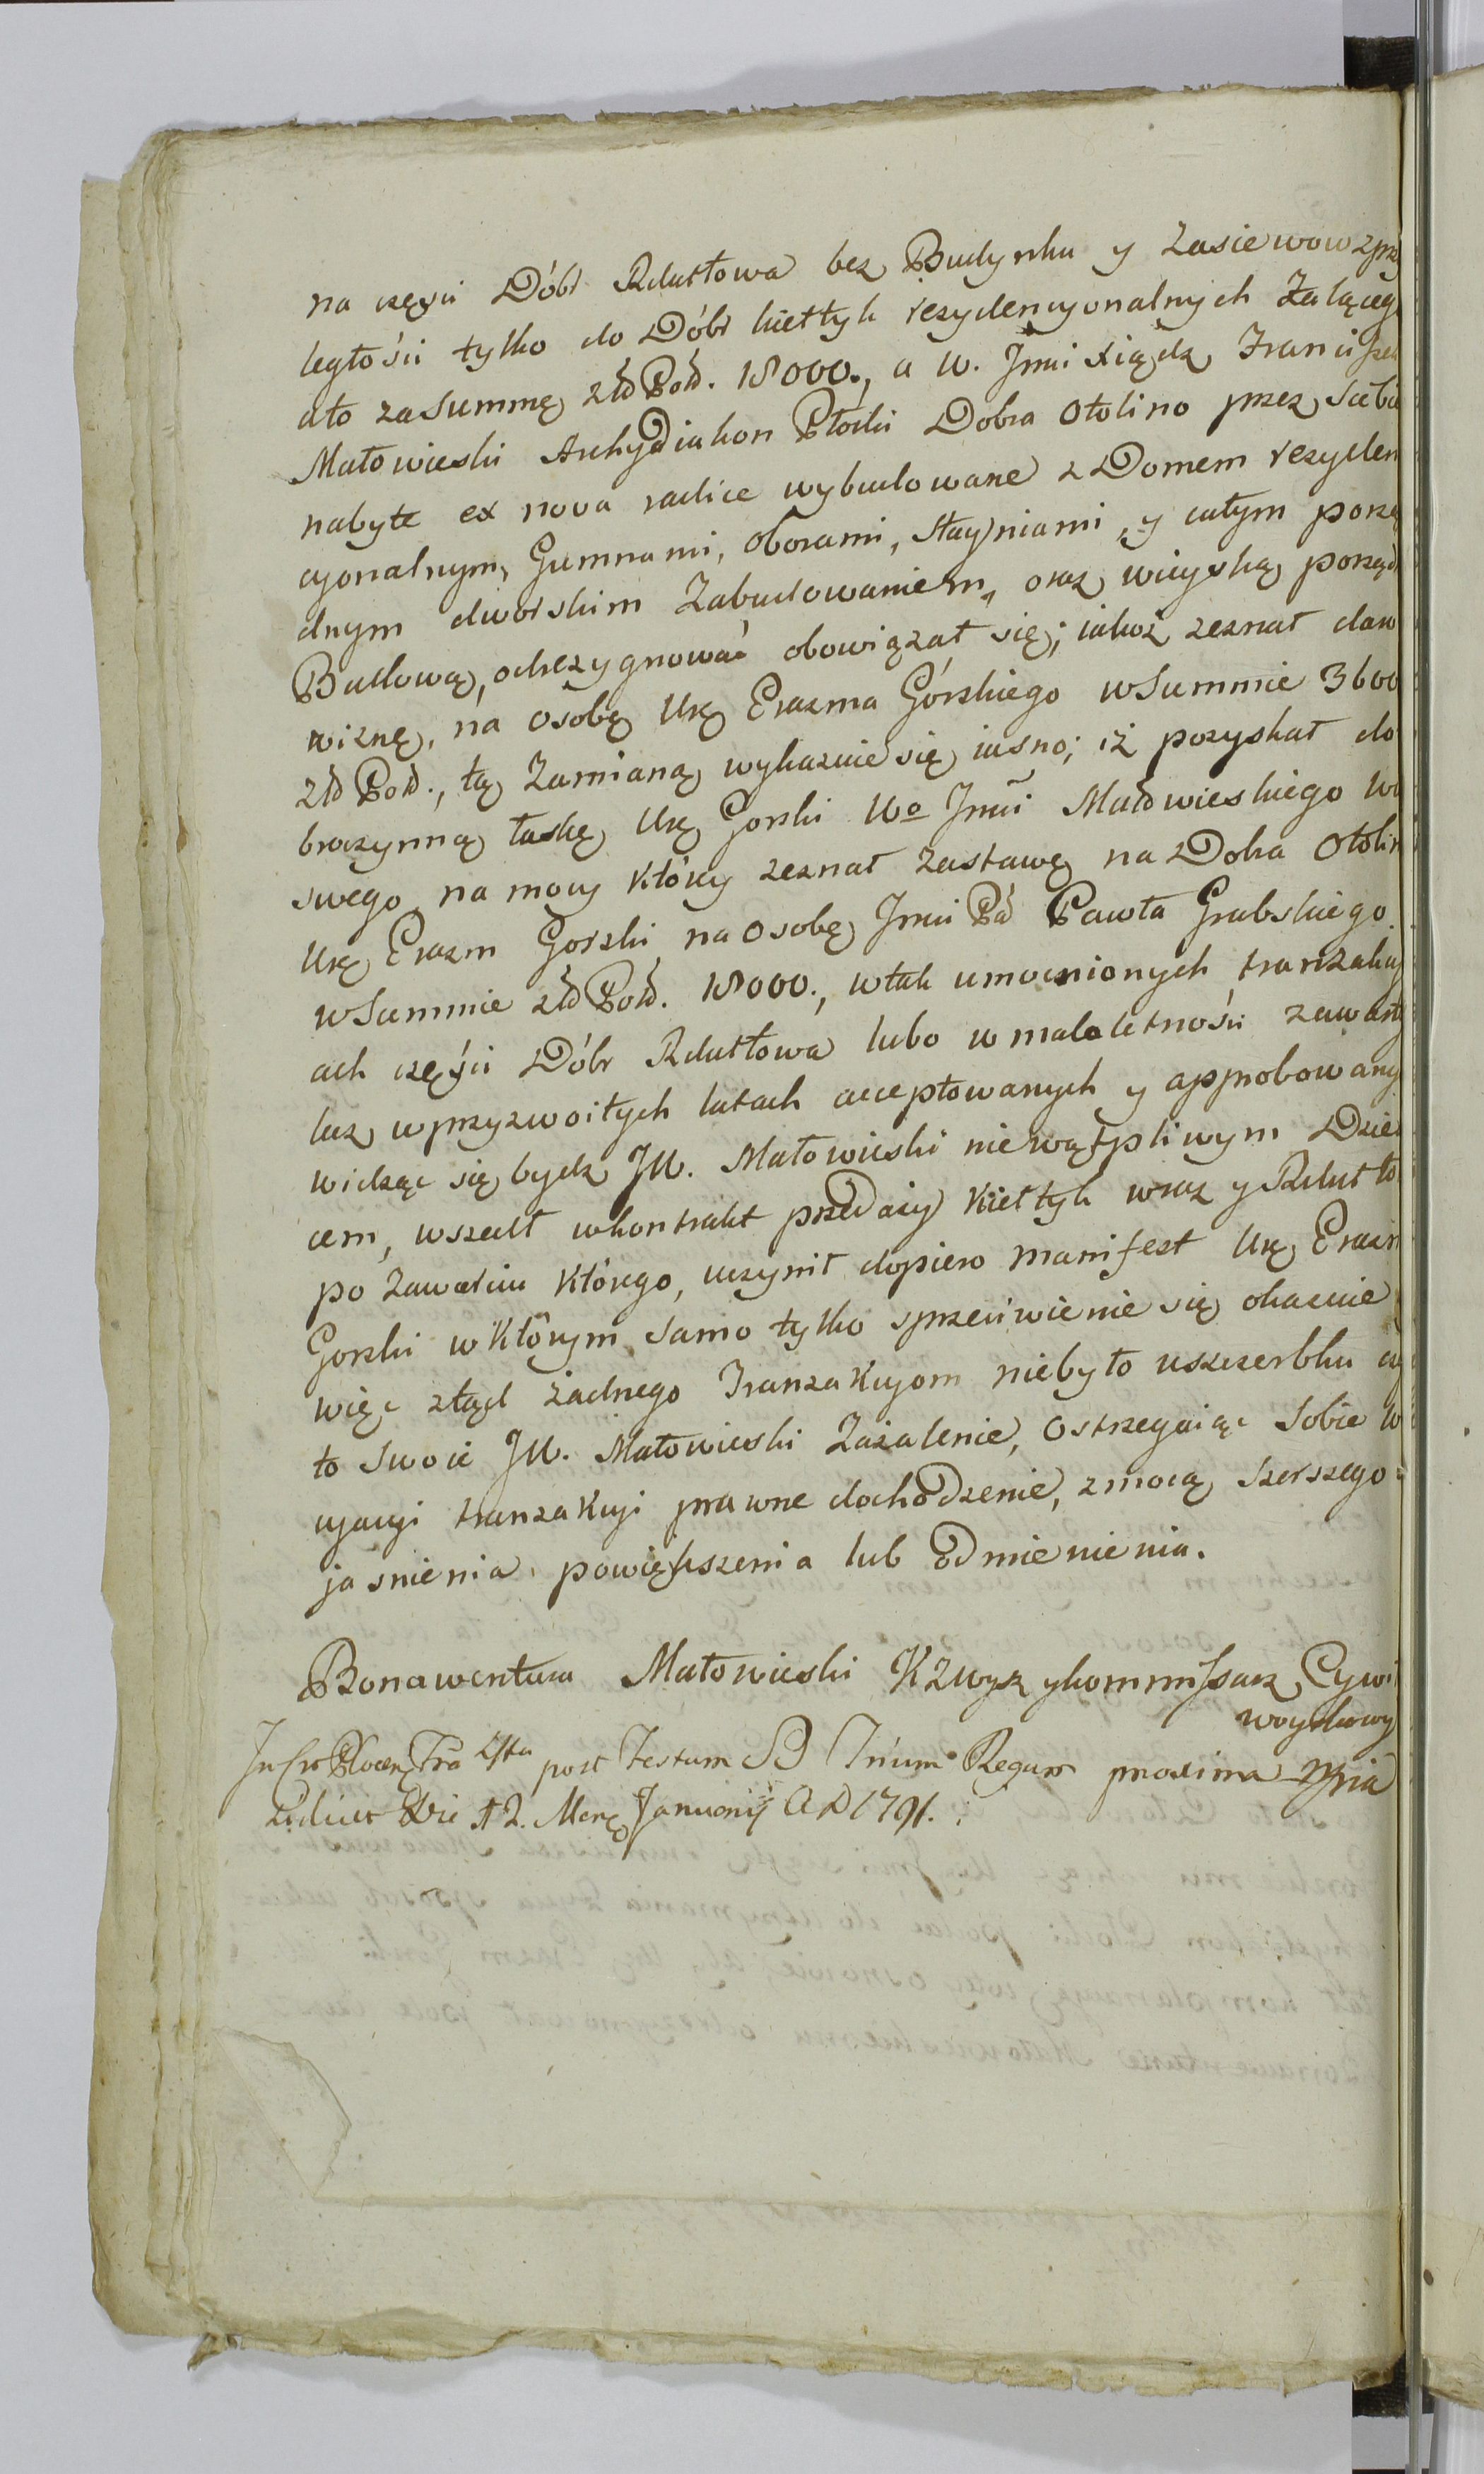 na części Dóbr Rdutłowa bez Budynku y Zasiewow z przy
ległości tylko do Dóbr kiełtyk rezydencyonalnych Żalącego
ato za Summę złð Polð. 18000., a W. Jmći Xiądz Franciszek
Małowieski Archydiakon Płocki Dobra Otolino przez Siebie
nabyte ex nova radice wybudowane z Domem rezyden
cyonalnym, Gumnami, oborami, Stayniami, y całym porzą
dnym dworskim Zabudowaniem, oraz wieyską porząd
Budową, odrezygnować obowiązał się; iakoż zeznał daro
wiznę, na osobę Urę Erazma Górskiego w Summie 3600
złð Polð., tą Zamianą wykazuie się iasno; iż pozyskał do
broczynną łaskę Urę Gorski Wo Jmći Małowieskiego Wu
swego, na mocy którey zeznał Zastawę na Dobra Otolin
Urę Erazm Gorski, na Osobę Jmći Pa Pawła Grabskiego
w Summie złð Polð. 18000., w tak umocnionych tranzakcy
ach części Dóbr Rdutłowa lubo w małoletności zawarty
lecz w przyzwoitych latach acceptowanych y approbowany
widząc się bydz JW. Małowieski niewątpliwym Dzie
cem, wszedł w kontrakt przedaży Kiełtyk wraz y Rdutło
po Zawarciu którego, uczynił dopiero manifest Urę Erazm
Gorski w którym samo tylko sprzeciwienie się okazuie
więc ztąd żadnego Tranzakcyom niebyło uszczerbku
to Swoie JW. Małowieski Zażalenie, Ostrzegaiąc Sobie
tranzakcyi prawne dochodzenie, z mocą Szerszego
jasnienia, powiększenia lub odmienienia.
Bonawentura Małowieski KZwysz ykommissarz Cywi
woyskowy
post Festum Trium Regum proxima
Die 12. Mens Januarij AD 1791.